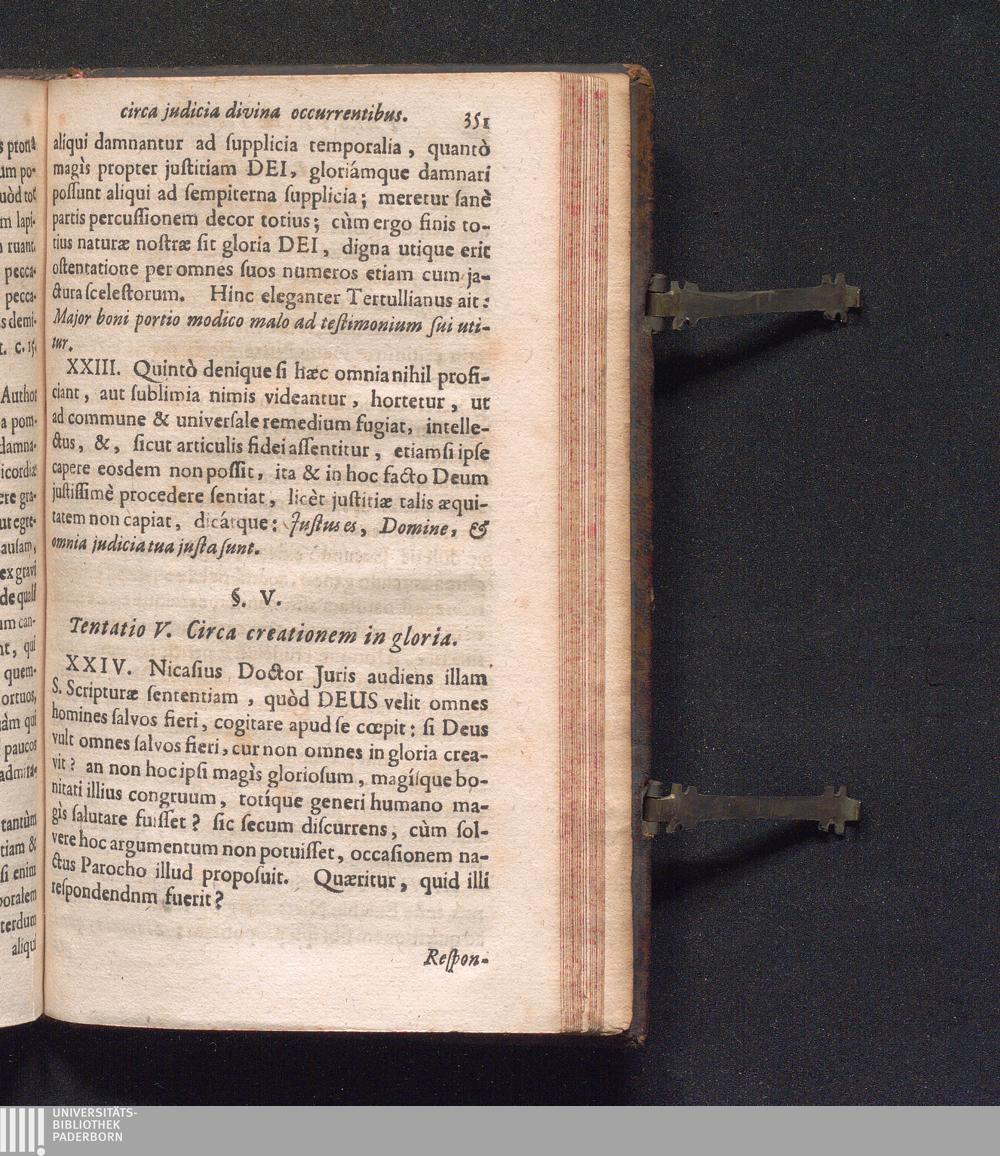 s
um po-
uòd tot
m lapi-
n ruant,
pecca-
pecca-
s demi-
t. c. 15.
Author
a pom-
damna-
icordiæ
ere gra-
ut egre-
ausam,
ex gravi
de
um can-
nt, qui
quem-
ortuos,
uàm qui
paucos
admira-
tantùm
tiam &
si enim
poralem
terdum
aliqui
circa judicia divina occurrentibus. 351
aliqui damnantur ad ſupplicia temporalia, quantò
magìs propter juſtitiam DEI, gloriámque damnari
poſſunt aliqui ad ſempiterna ſupplicia; meretur ſanè
partis percuſſionem decor totius; cùm ergo finis to-
tius naturæ noſtræ ſit gloria DEI, digna utique erit
oſtentatione per omnes ſuos numeros etiam cum ja-
ctura ſceleſtorum. Hinc eleganter Tertullianus ait:
Major boni portio modico malo ad teſtimonium ſui uti-
tur.
XXIII. Quintò denique ſi hæc omnia nihil profi-
ciant, aut ſublimia nimis videantur, hortetur, ut
ad commune & univerſale remedium fugiat, intelle-
ctus, &, ſicut articulis fidei aſſentitur, etiamſi ipſe
capere eosdem non poſſit, ita & in hoc facto Deum
juſtiſſimè procedere ſentiat, licèt juſtitiæ talis æqui-
tatem non capiat, dicátque: Juſtus es, Domine, &
omnia judicia tua juſta ſunt.
§. V.
Tentatio V. Circa creationem in gloria.
XXIV. Nicaſius Doctor Juris audiens illam
S. Scripturæ ſententiam, quòd DEUS velit omnes
homines ſalvos fieri, cogitare apud ſe cœpit: ſi Deus
vult omnes ſalvos fieri, cur non omnes in gloria crea-
vit? an non hoc ipſi magìs glorioſum, magíſque bo-
nitati illius congruum, totíque generi humano ma-
gìs ſalutare fuiſſet? ſic ſecum diſcurrens, cùm ſol-
vere hoc argumentum non potuiſſet, occaſionem na-
ctus Parocho illud propoſuit. Quæritur, quid illi
reſpondendnm fuerit?
Reſpon-
UNIVERSITÄTS-
BIBLIOTHEK
PADERBORN